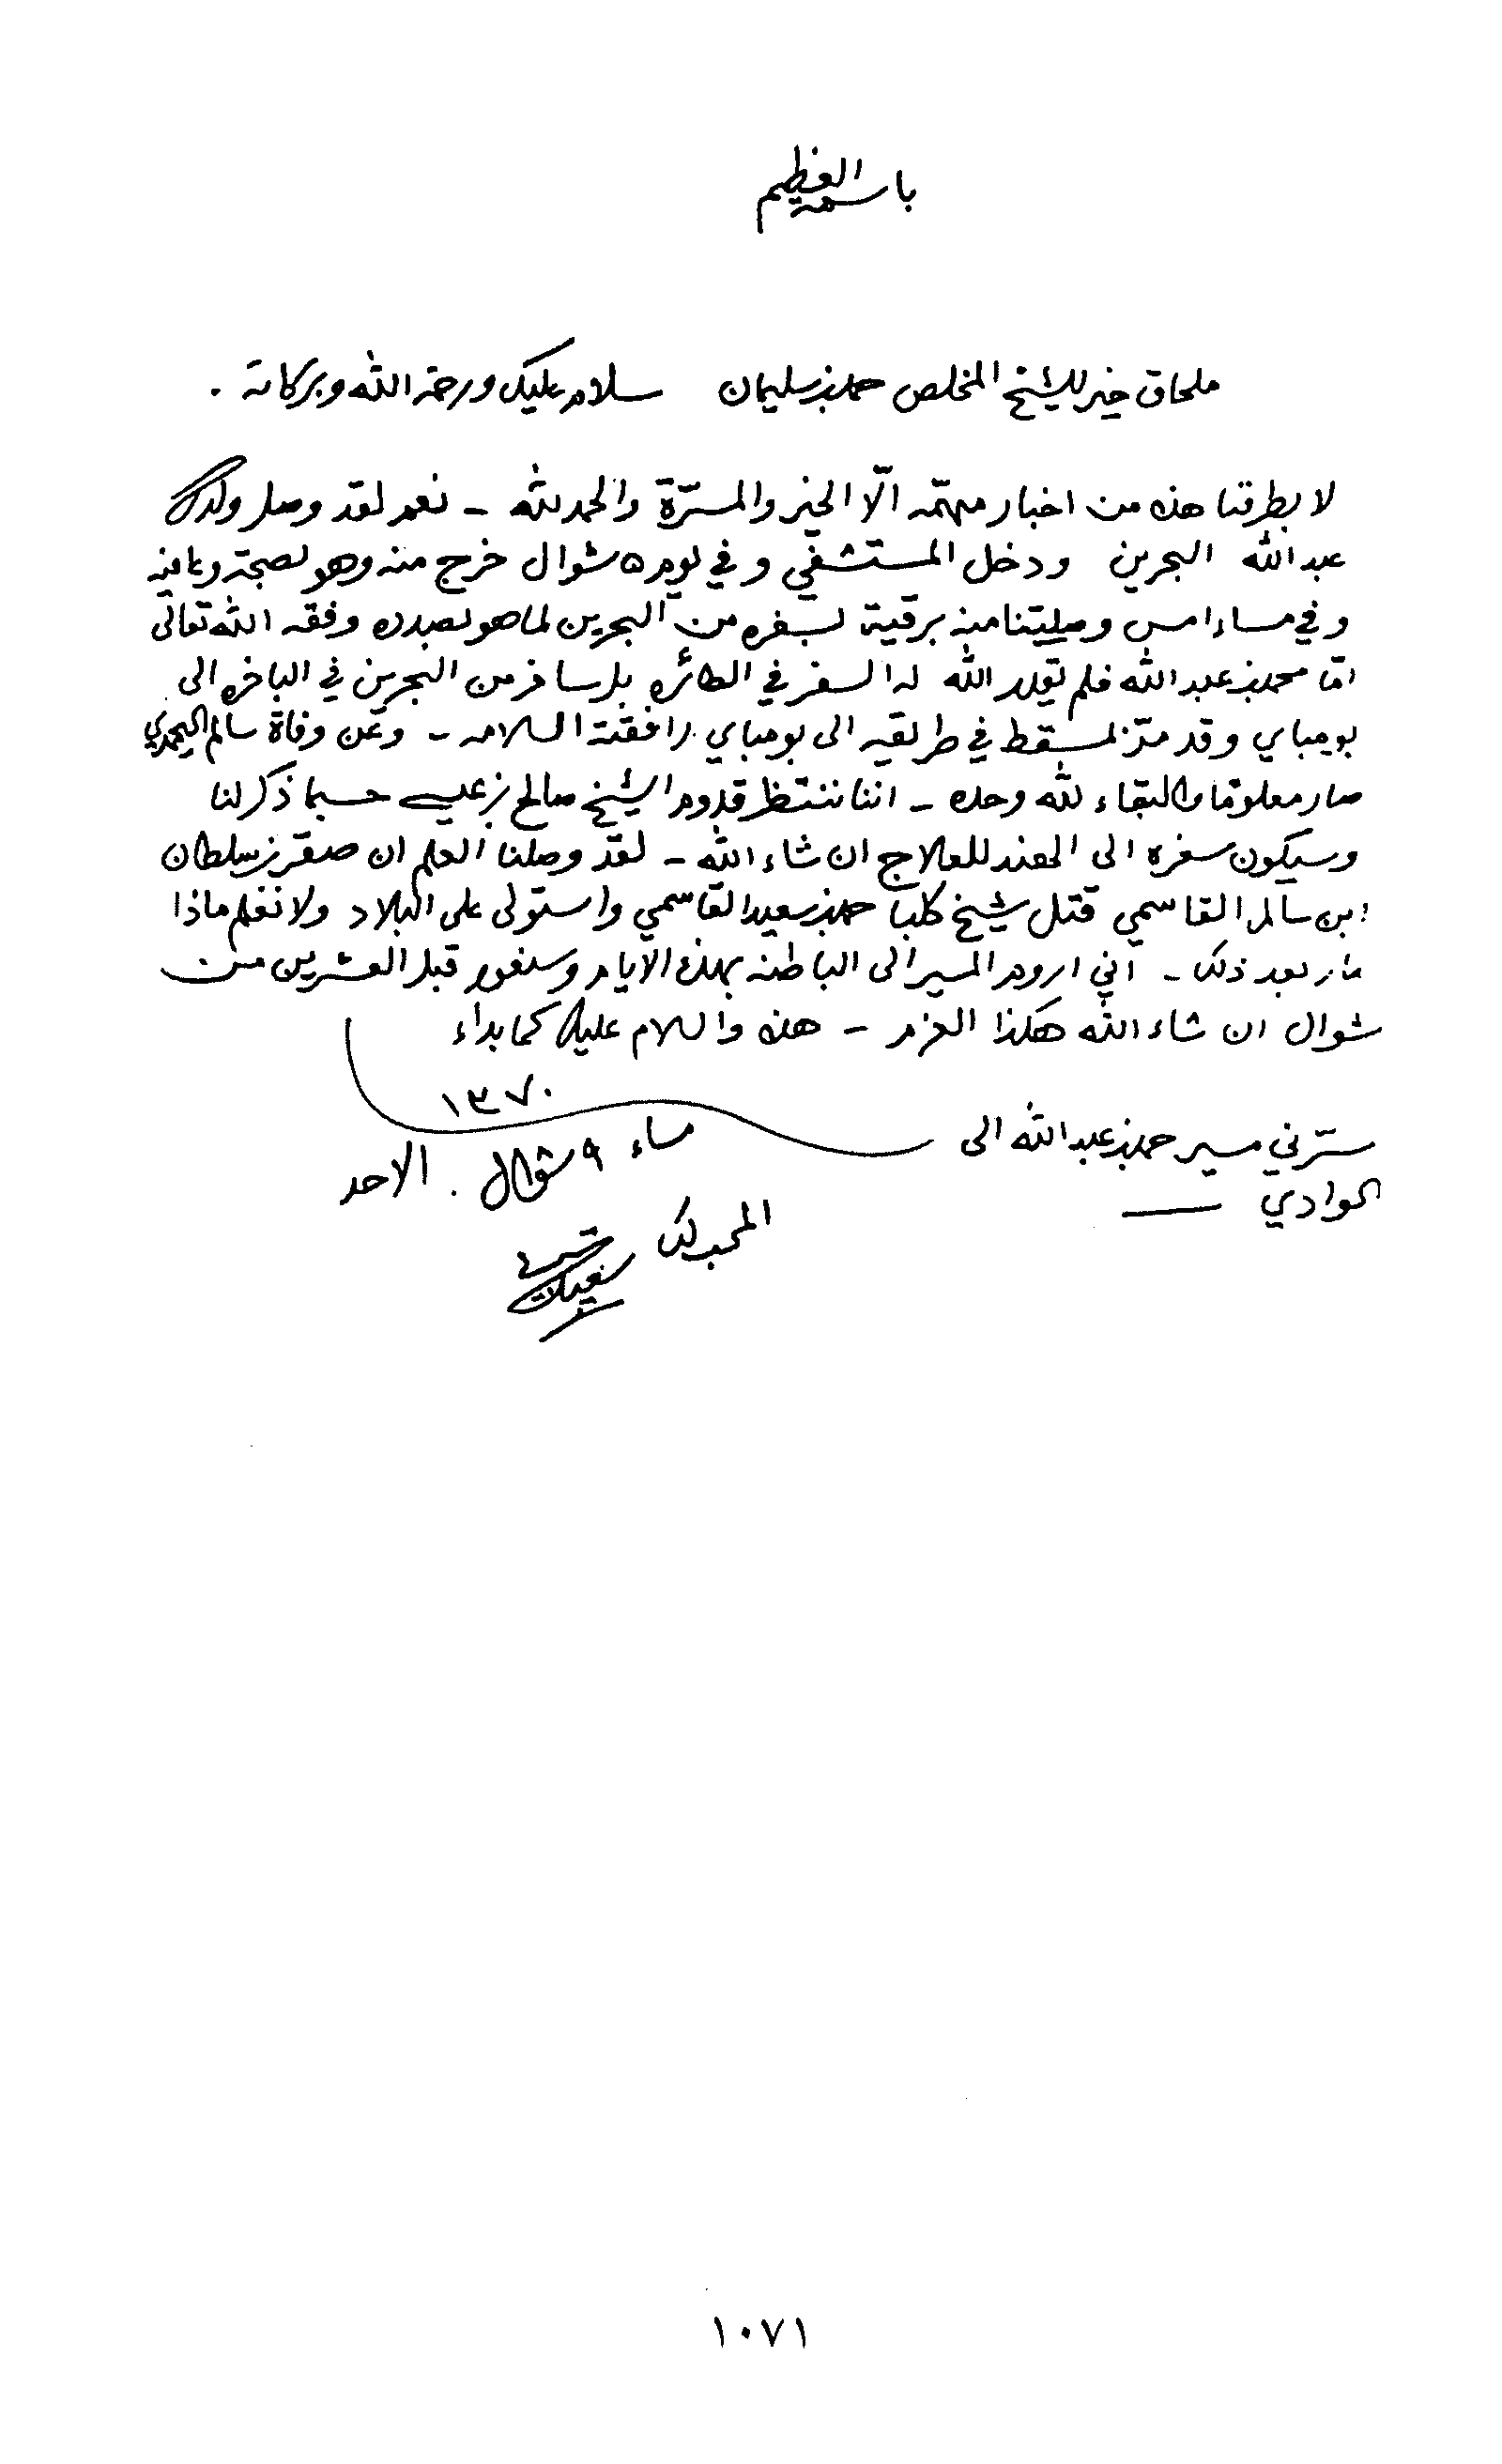 باسمه العظيم
ملحاق خير للشيخ المخلص حمد بن سليمان سلام عليك ورحمة الله وبركاته .
لا بطرفنا هذه من اخبار مهمّه الّا الخير والمسرّة والحمد لله - نعم لقد وصل ولدك
عبدالله البحرين ودخل المستشفي وفي يوم ٥ شوال خرج منه وهو بصحة وعافيه
وفي مساء امس وصلتنا منه برقية بسفره من البحرين لما هو بصدده وفقه الله تعالى
امّا محمد بن عبدالله فلم يقدر الله له السفر في الطائره بل سافر من البحرين في الباخره الى
بومباي وقد مرّ بمسقط في طريقه الى بومباي رافقته السلامه - وعن وفاة سالم اليحمدي
صار معلومًا والبقاء لله وحده - اننا ننتظر قدوم الشيخ صالح بن عيسى حسبما ذكر لنا
وسيكون سفره الى الهند للعلاج ان شاء الله - لقد وصلنا العلم ان صقر بن سلطان
ابن سالم القاسمي قتل شيخ كلبا حمد بن سعيد القاسمي واستولى على البلاد ولا نعلم ماذا
صار بعد ذلك - اني اروم المسير الى الباطنه بهذه الايام وسنعود قبل العشرين من
شوال ان شاء الله هكذا العزم - هذه والسلام عليك كما بداء
١٣٧٠
سرّني مسير حمد بن عبدالله الى
الوادي
مساء ٩ شوال . الاحد
المحب لك
١٠٧١